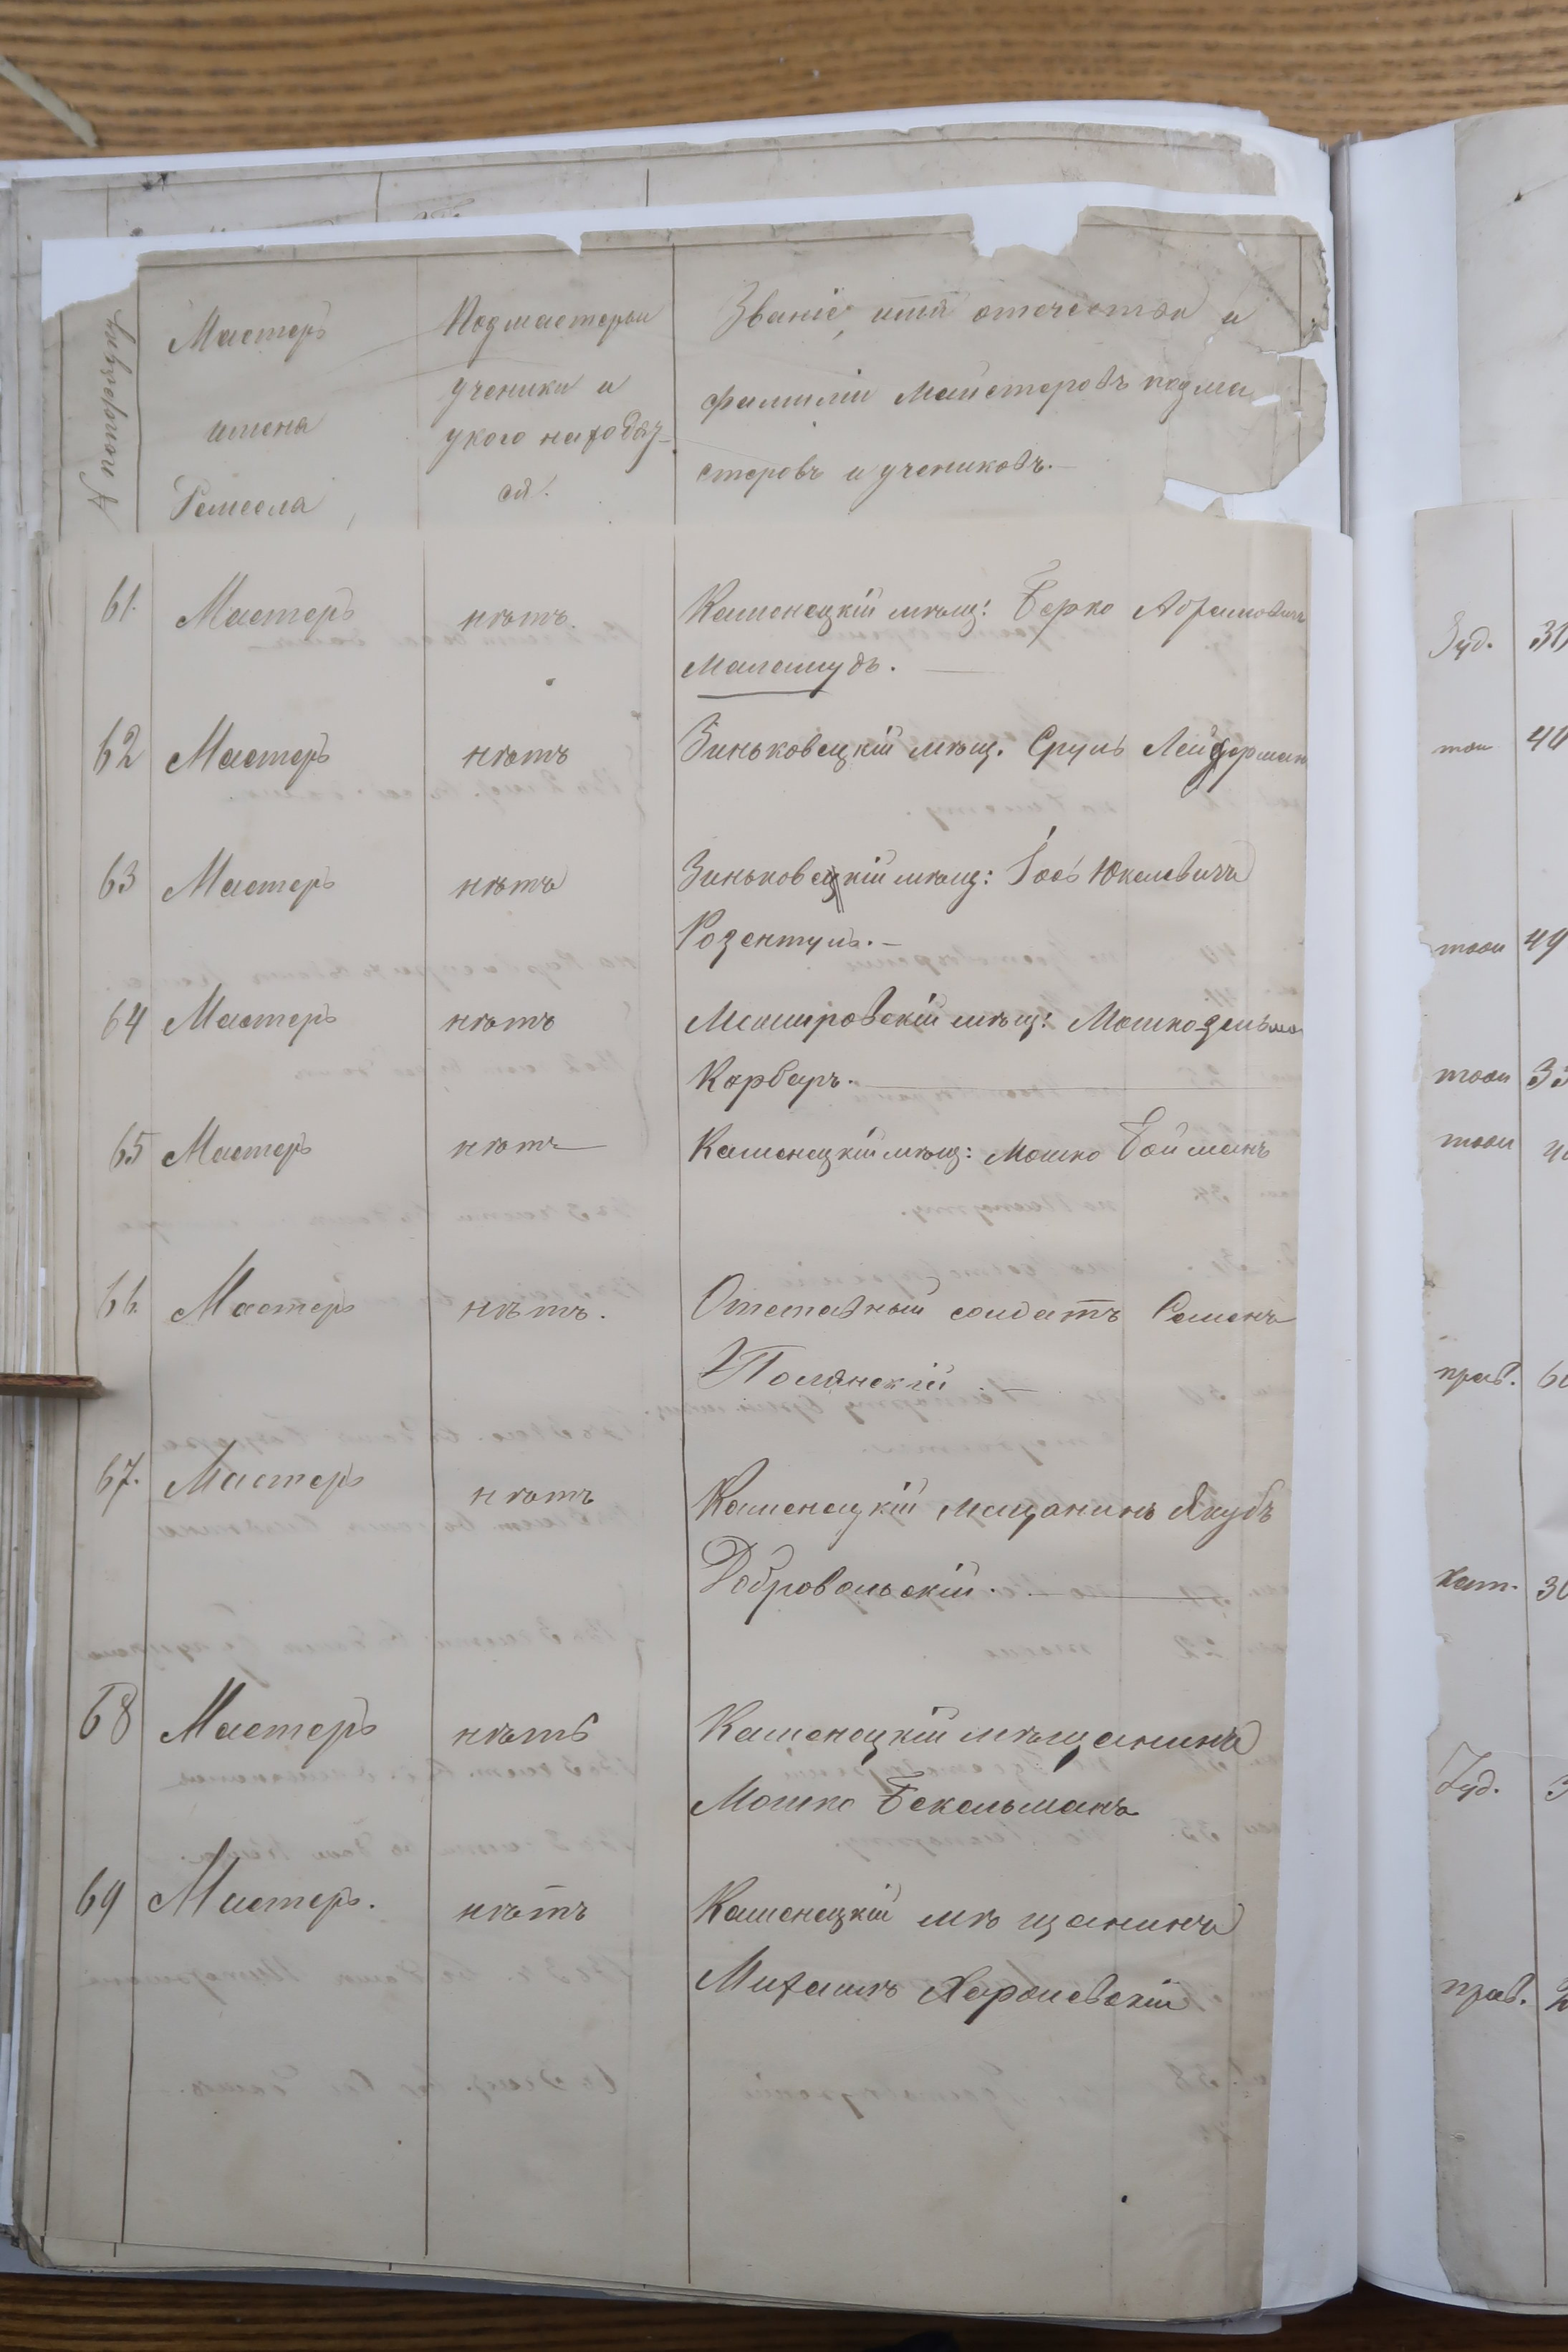 № по порядку
Мастеръ
имена
Ремесла
Подмастерьи
ученики и
укого находят-
ся.
Званіе, имя отечество и
фамиліи Майстеровъ подма
стеровъ и учениковъ.
61. Мастеръ нѣтъ. Каменецкій мѣщ: Берко Абрамовичъ
Маламудъ.
62 Мастеръ нѣтъ Зиньковецкій мѣщ. Сруль Лейдерман
63 Мастеръ нѣтъ Зиньковецкій мѣщ: Іось Юкелевичъ
Розентулъ.
64 Мастеръ нѣтъ мѣщ: Мошко
Карберъ.
65 Мастеръ нѣтъ Каменецкій мѣщ: Мошко Бойманъ
66. Мастеръ нѣтъ. Отставный солдатъ Семенъ
Полянскій
67. Мастеръ нѣтъ Каменецкій мещанинъ Якубъ
Добровольскій.
68 Мастеръ нѣтъ Каменецкій мѣщанинъ
Мошко Бекельманъ
69 Мастеръ. нѣтъ Каменецкій мѣщанинъ
Михаилъ
Іуд. 
тои 40
тоои 49
тоои
тоои
прав.
кат.
Іуд.
прав.